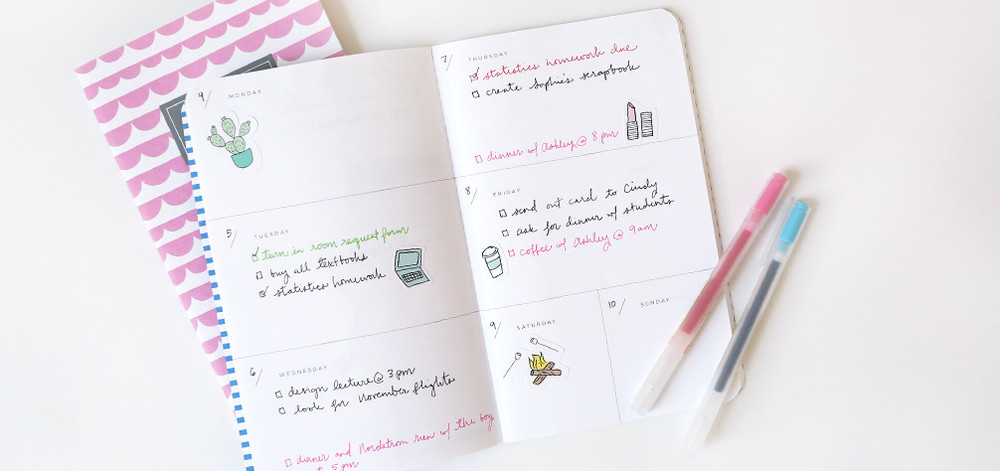 4/ MONDAY
5/ TUESDAY
turn in room request form
buy all textbooks
statistics homework
6/ WEDNESDAY
design lecture @ 3pm
look for november flights
dinner and Nordstrom run w/ the boy
5pm
7/ THURSDAY
statistics homework due
create Sophie's scrapbook
dinner w/ Ashley @ 8pm
8/ FRIDAY
send out card to Cindy
ask for dinner w/ students
coffee w/ Ashley @ 9am
9/ SATURDAY
10/ SUNDAY